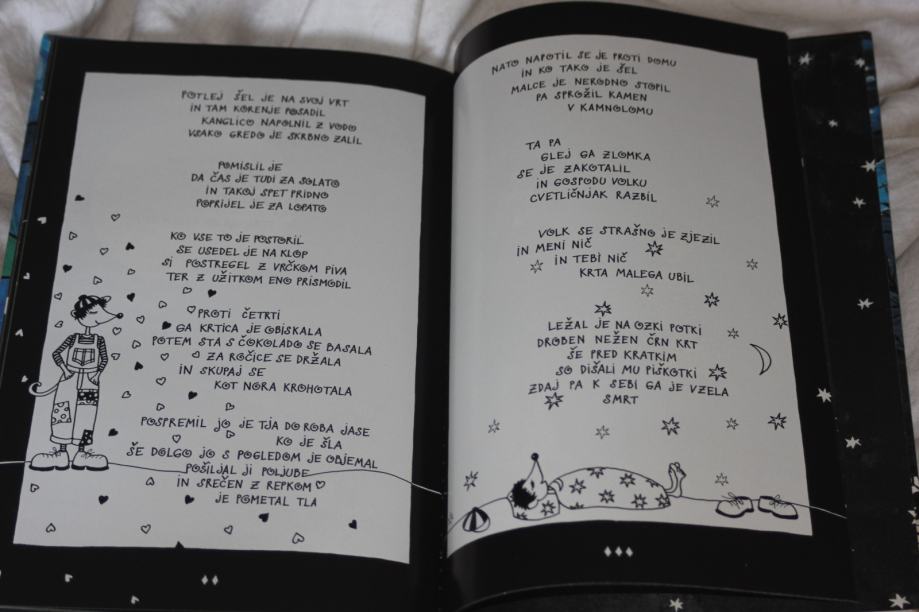 POTLEJ ŠEL JE NA SVOJ VRT
IN TAM KORENJE POSADIL
KANGLICO NAPOLNIL Z VODO
VSAKO GREDO JE SKRBNO ZALIL
POMISLIL JE
DA ČAS JE TUDI ZA SOLATO
IN TAKOJ SPET PRIDNO
POPRIJEL JE ZA LOPATO
KO VSE TO JE POSTORIL
SE USEDEL JE NA KLOP
SI POSTREGEL Z VRČKOM PIVA
TER Z UŽITKOM ENO PRISMODIL
PROTI ČETRTI
GA KRTICA JE OBISKALA
POTEM STA S ČOKOLADO SE BASALA
ZA ROČICE SE DRŽALA
IN SKUPAJ SE
KOT NORA KROHOTALA
POSPREMIL JO JE TJA DO ROBA JASE
KO JE ŠLA
ŠE DOLGO JO S POGLEDOM JE OBJEMAL
POŠILJAL JI POLJUBE
IN SREČEN Z REPKOM
JE POMETAL TLA
NATO NAPOTIL SE JE PROTI DOMU
IN KO TAKO JE ŠEL
MALCE JE NERODNO STOPIL
PA SPROŽIL KAMEN
V KAMNOLOMU
TA PA
GLEJ GA ZLOMKA
SE JE ZAKOTALIL
IN GOSPODU VOLKU
CVETLIČNJAK RAZBIL
VOLK SE STRAŠNO JE ZJEZIL
IN MENI NIČ
IN TEBI NIČ
KRTA MALEGA UBIL
LEŽAL JE NA OZKI POTKI
DROBEN NEŽEN ČRN KRT
ŠE PRED KRATKIM
SO DIŠALI MU PIŠKOTKI
ZDAJ PA K SEBI GA JE VZELA
SMRT